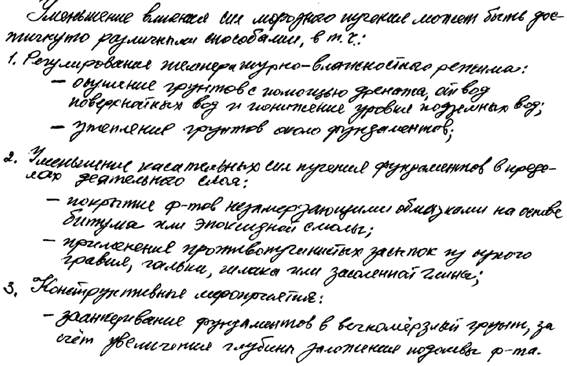 Уменьшение влияния сил морозного пучения может быть дос-
тигнуто различными способами, в т.ч.:
1. Регулирование температурно-влажностного режима:
– осушение грунтов с помощью дренажа, отвод
поверхностных вод и понижение уровня подземных вод;
– утепление грунтов около фундаментов;
2. Уменьшение касательных сил пучения фундаментов в преде-
лах деятельного слоя:
– покрытие ф-тов незамерзающими обмазками на основе
битума или эпоксидной смолы;
– применение противопучинистых засыпок из сухого
гравия, гальки, шлака или засоленной глины;
3. Конструктивные мероприятия:
– заанкеривание фундаментов в вечномёрзлый грунт, за
счёт увеличения глубины заложения подошвы ф-та.